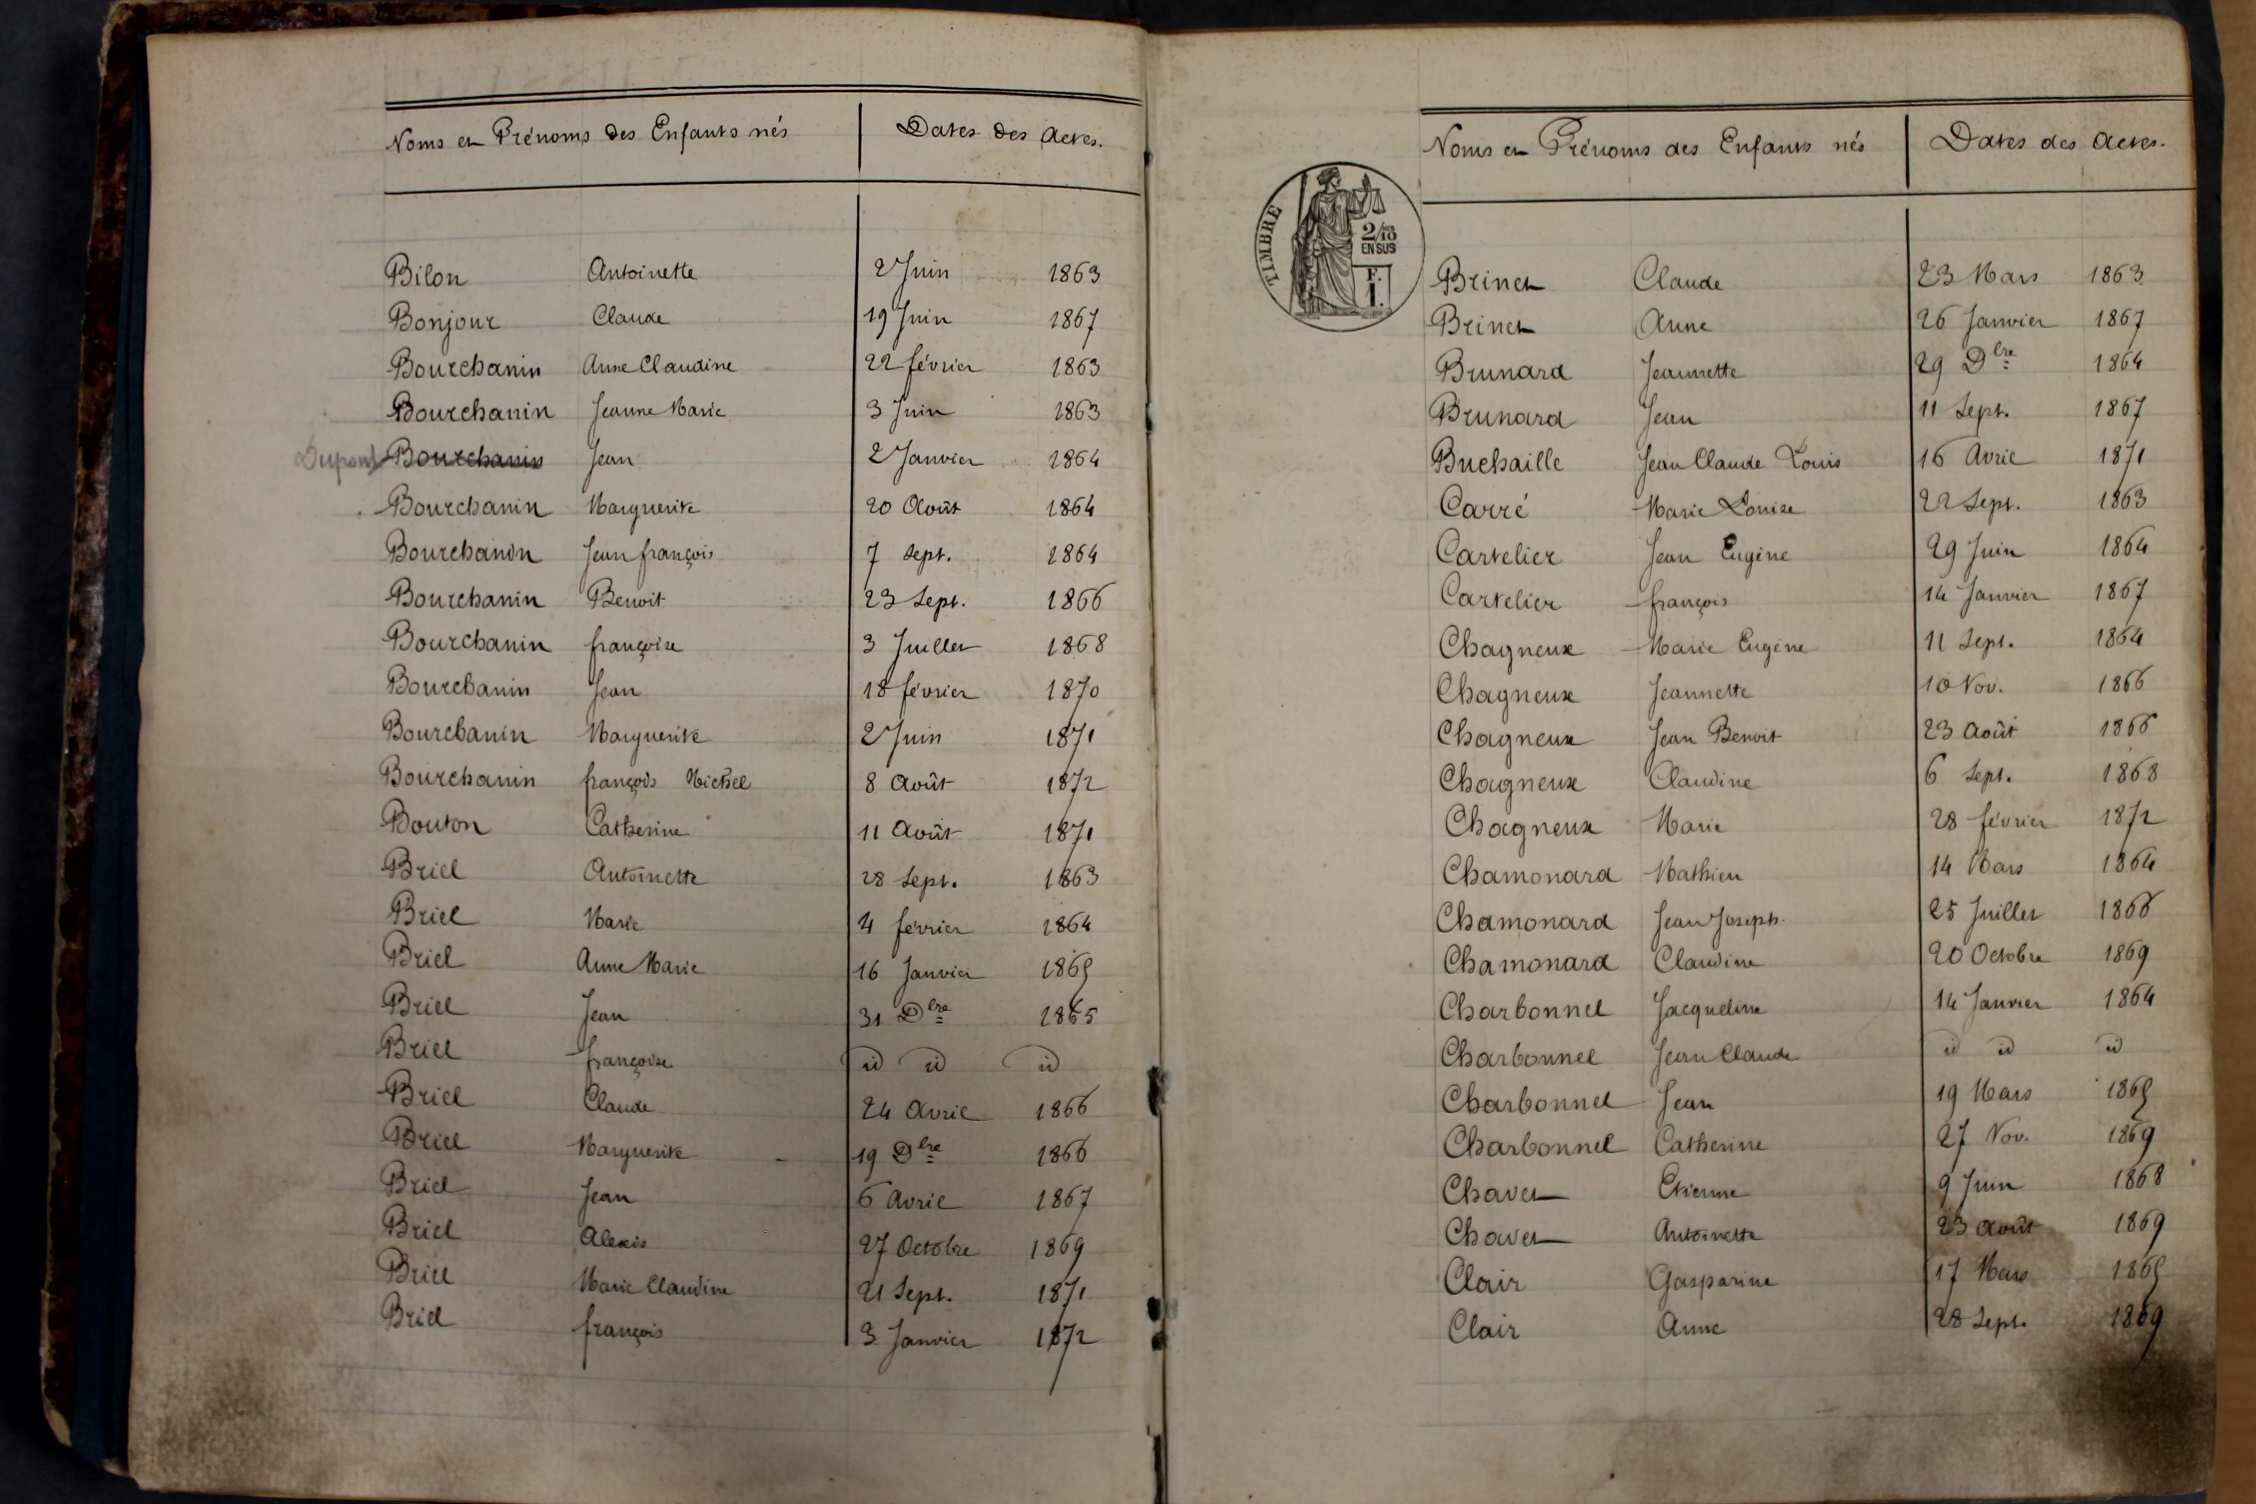 Noms et Prénoms des Enfants nés Dates des Actes.
Bilon Antoinette 2 Juin 1863
Bonjour Claude 19 Juin 1867
Bourchanin Anne Claudine 22 février 1863
Bourchanin Jeanne Marie 3 Juin 1863
Dupont Bourchanin Jean 2 Janvier 1864
Bourchanin Marguerite 20 Août 1864
Bourchanin Jean françois 7 Sept. 1864
Bourchanin Benoit 23 Sept. 1866
Bourchanin françoise 3 Juillet 1868
Bourchanin Jean 18 février 1870
Bourchanin Marguerite 2 Juin 1871
Bourchanin françois Michel 8 Août 1872
Bouton Catherine 11 Août 1871
Briel Antoinette 28 Sept. 1863
Briel Marie 4 février 1864
Briel Anne Marie 16 Janvier 1865
Briel Jean 31 Dbre 1865
Briel françoise id id id
Briel Claude 24 Avril 1866
Briel Marguerite 19 Dbre 1866
Briel Jean 6 Avril 1867
Briel Alexis 27 Octobre 1869
Briel Marie Claudine 21 Sept. 1871
Briel françois 3 Janvier 1872
Noms et Prénoms des Enfants nés Dates des Actes.
TIMBRE
2/10
EN SUS
F.
1.
Brinet Claude 23 Mars 1863
Brinet Anne 26 Janvier 1867
Brunard Jeannette 29 Dbre 1864
Brunard Jean 11 Sept. 1867
Buchaille Jean Claude Louis 16 Avril 1871
Carré Marie Louise 22 Sept. 1863
Cartelier Jean Eugène 29 Juin 1864
Cartelier françois 14 Janvier 1867
Chagneux Marie Eugène 11 Sept. 1864
Chagneux Jeannette 10 Nov. 1866
Chagneux Jean Benoit 23 Août 1866
Chagneux Claudine 6 Sept. 1868
Chagneux Marie 28 février 1872
Chamonard Mathieu 14 Mars 1864
Chamonard Jean Joseph 25 Juillet 1866
Chamonard Claudine 20 Octobre 1869
Charbonnel Jacqueline 14 Janvier 1864
Charbonnel Jean Claude id id id
Charbonnel Jean 19 Mars 1865
Charbonnel Catherine 27 Nov. 1869
Chavet Etienne 9 Juin 1868
Chavet Antoinette 23 Août 1869
Clair Gasparine 17 Mars 1865
Clair Anne 28 Sept. 1869